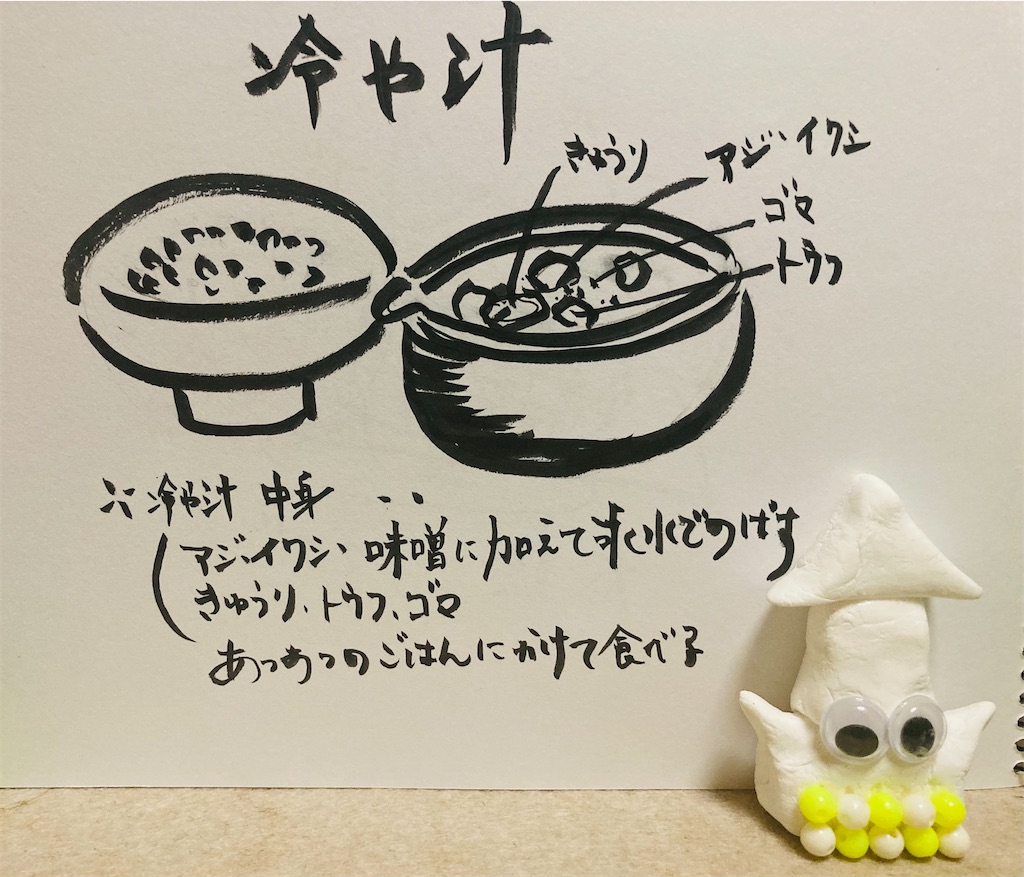 冷や汁
きゅうり
アジ・イワシ
ゴマ
トウフ
冷や汁 中身
アジ、イワシ、味噌に加えてすい水でのばす
きゅうり、トウフ、ゴマ
あつあつのごはんにかけて食べる